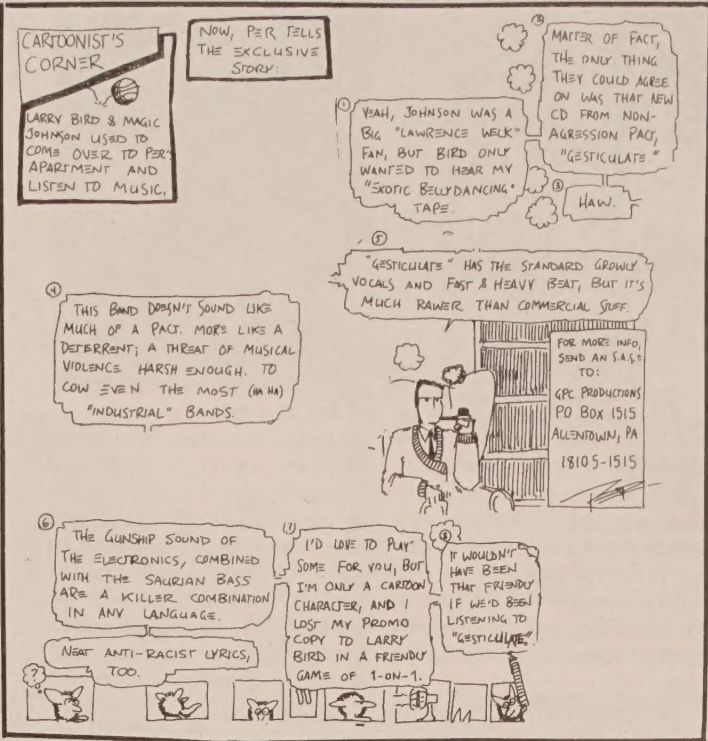 CARTOONIST'S
CORNER
LARRY BIRD & MAGIC
JOHNSON USED TO
COME OVER TO PER'S
APARTMENT AND
LISTEN TO MUSIC.
NOW, PER TELLS
THE EXCLUSIVE
STORY:
①
YEAH, JOHNSON WAS A
BIG "LAWRENCE WELK"
FAN, BUT BIRD ONLY
WANTED TO HEAR MY
"EXOTIC BELLYDANCING"
TAPE.
②
MATTER OF FACT,
THE ONLY THING
THEY COULD AGREE
ON WAS THAT NEW
CD FROM NON-
AGRESSION PACT,
"GESTICULATE."
③
HAW.
④
THIS BAND DOESN'T SOUND LIKE
MUCH OF A PACT. MORE LIKE A
DETERRENT; A THREAT OF MUSICAL
VIOLENCE HARSH ENOUGH. TO
COW EVEN THE MOST (HA HA)
"INDUSTRIAL" BANDS.
⑤
"GESTICULATE" HAS THE STANDARD GROWLY
VOCALS AND FAST & HEAVY BEAT, BUT IT'S
MUCH RAWER THAN COMMERCIAL STUFF.
FOR MORE INFO,
SEND AN S.A.S.E
TO:
GPC PRODUCTIONS
PO BOX 1515
ALLENTOWN, PA
18105-1515
⑥
THE GUNSHIP SOUND OF
THE ELECTRONICS, COMBINED
WITH THE SAURIAN BASS
ARE A KILLER COMBINATION
IN ANY LANGUAGE.
NEAT ANTI-RACIST LYRICS,
TOO.
?
⑦
I'D LOVE TO PLAY
SOME FOR YOU, BUT
I'M ONLY A CARTOON
CHARACTER, AND I
LOST MY PROMO
COPY TO LARRY
BIRD IN A FRIENDLY
GAME OF 1-ON-1.
⑧
IT WOULDN'T
HAVE BEEN
THAT FRIENDLY
IF WE'D BEEN
LISTENING TO
"GESTICULATE."